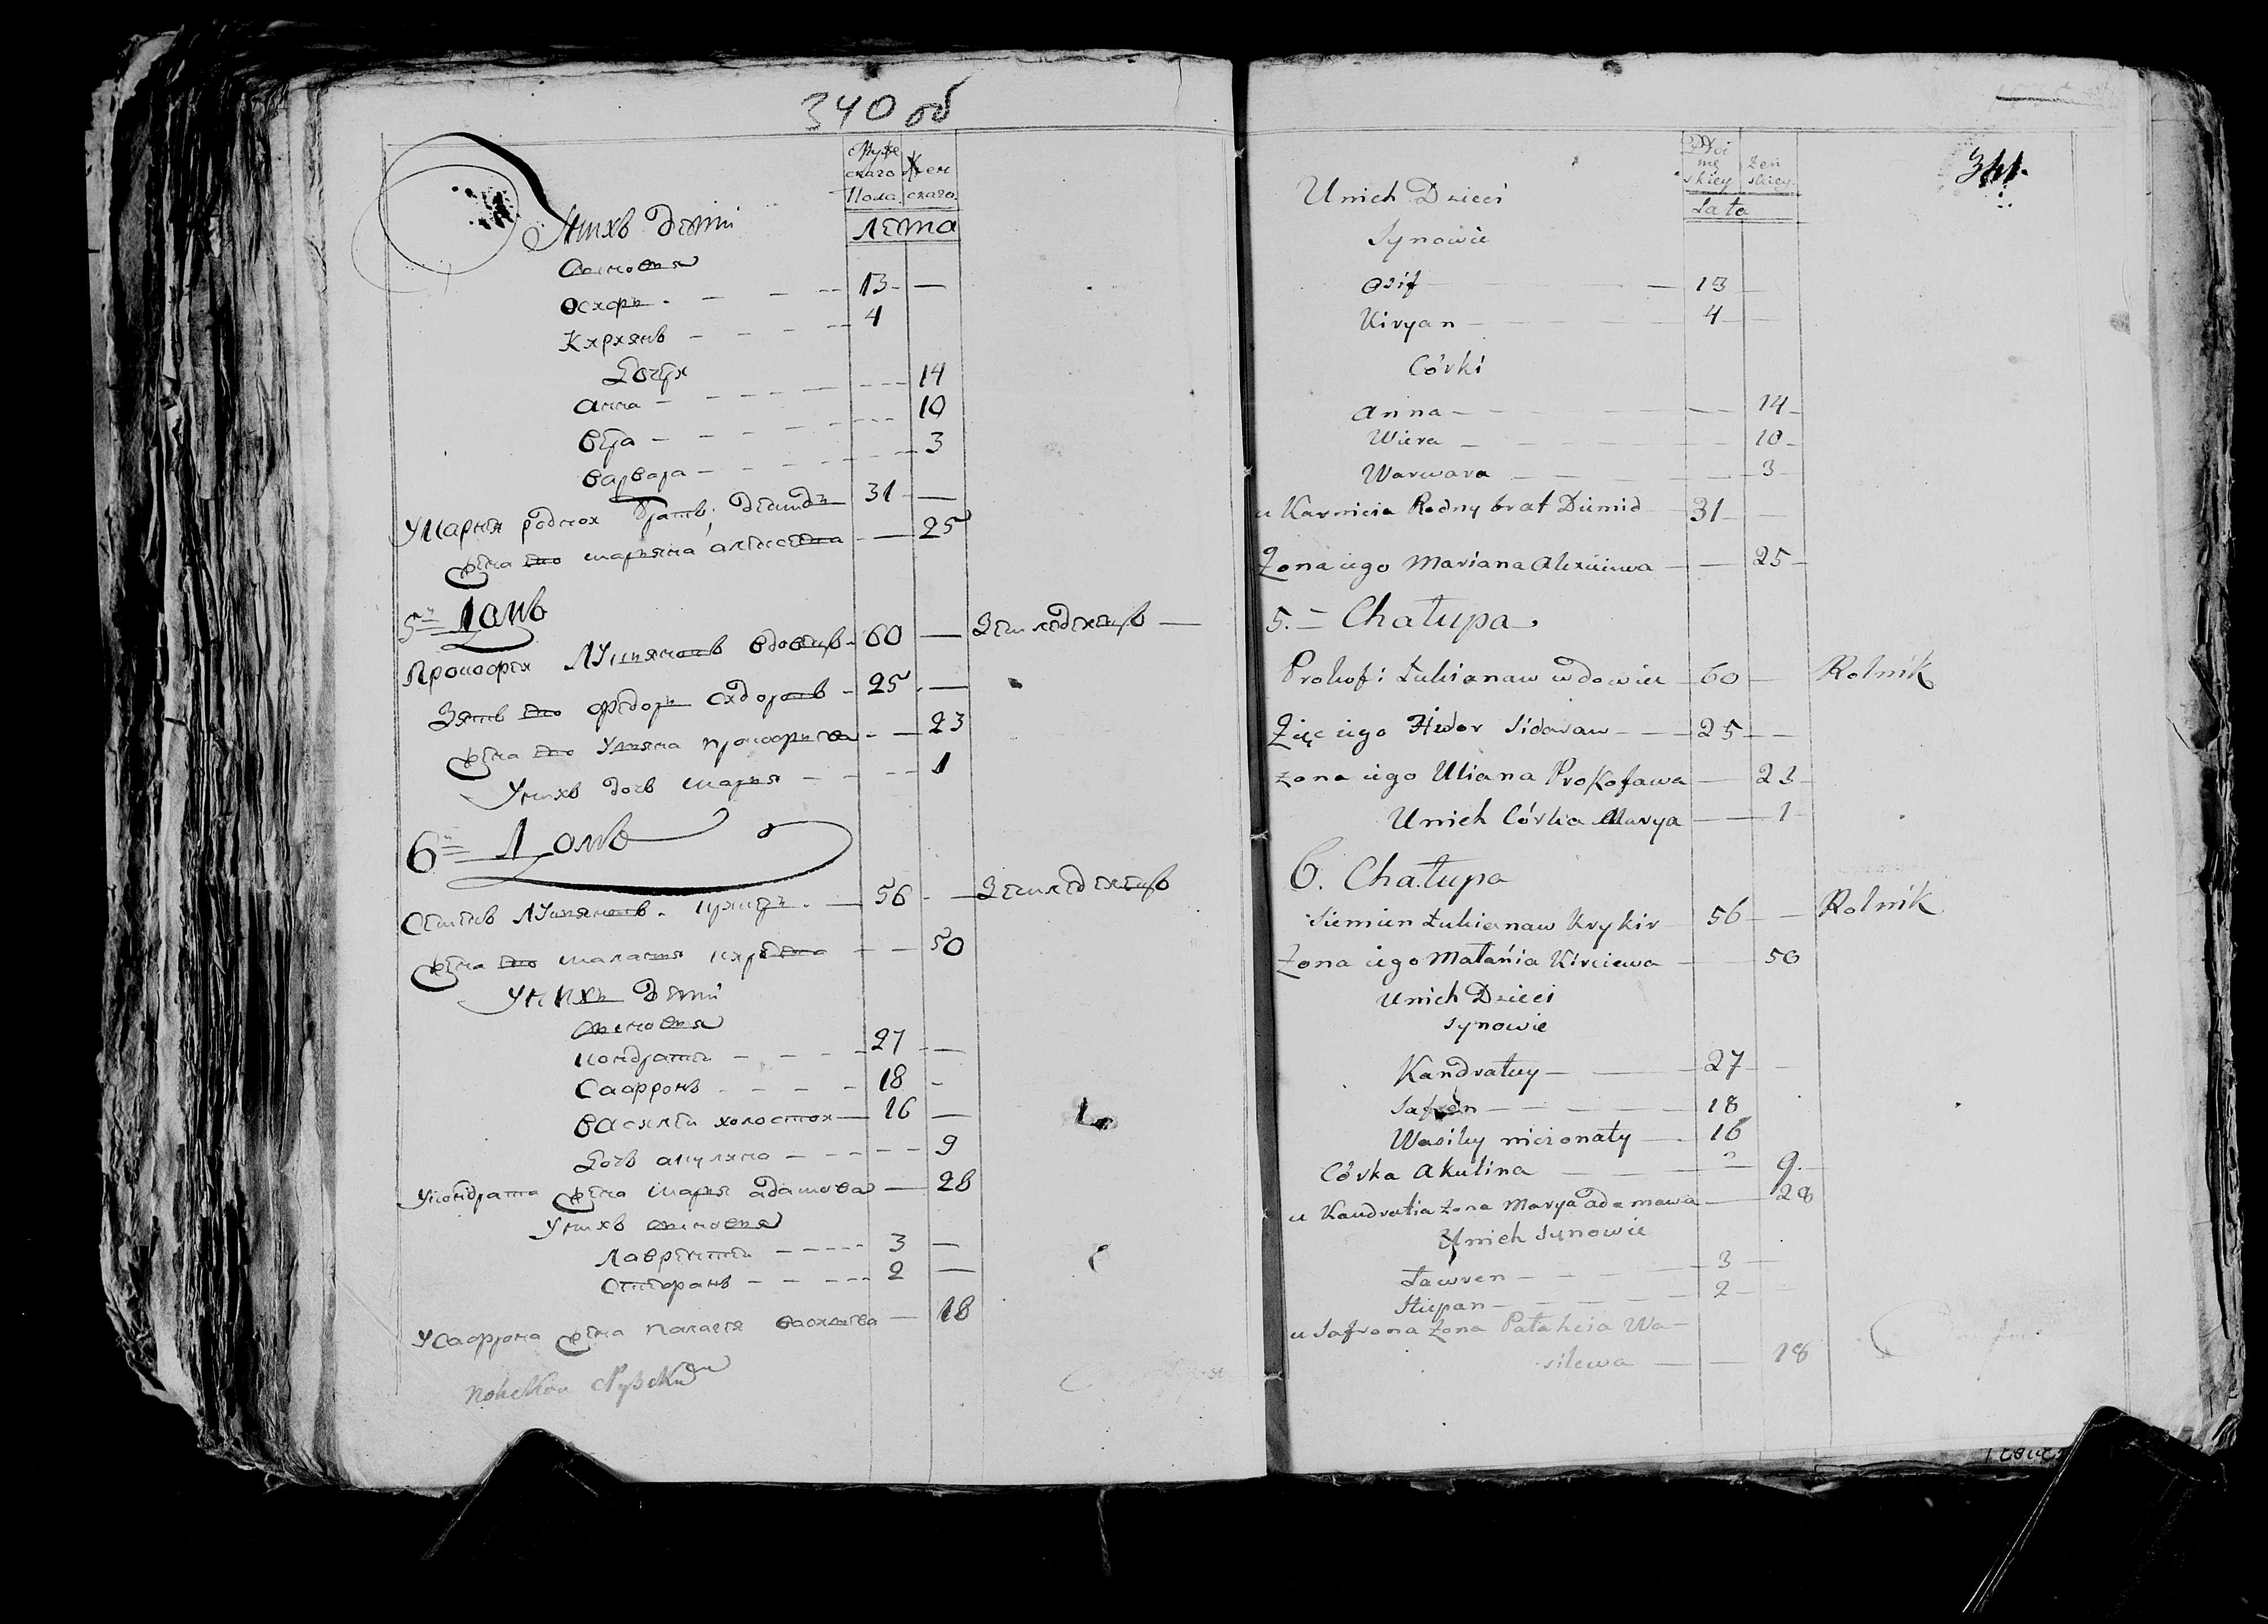 340 об
Мужескаго Пола Женскаго
лета
У нихъ дети
Сыновья
Осифъ 13
Кирянъ 4
Дочери
Анна 14
Вера 10
Варвара 3
У Карнея родной братъ Демидъ 31
жена его Марьяна Алексеева 25
5й Домъ
Прокофей Лукяновъ вдовецъ 60 Земледелецъ
Зять его Федоръ Сидоровъ 25
жена его Уляна Прокофьева 23
У нихъ дочь Марья 1
6й Домъ
Семенъ Лукяновъ 56 Земледелецъ
жена его Маланья Кирѣева 50
У нихъ дети
Сыновья
Кондратей 27
Сафронъ 18
Василей холостой 16
Дочь Акулина 9
У Кондрата жена Марья Адамова 28
У нихъ сыновья
Лаврентей 3
Стефанъ 2
У Сафрона жена Палагея Василева 18
341
Płci męskiey żeńskiey
Lata
U nich Dzieci
Synowie
Osif 13
Kiryan 4
Córki
Anna 14
Wiera 10
Warwara 3
u Karnieia Rodny brat Diemid 31
Żona iego Mariana Alexieiewa 25
5. Chałupa
Prokofi Łukianaw wdowiec 60 Rolnik
Zięć iego Fiedor Sidaraw 25
żona iego Uliana Prokofawa 23
U nich Córka Marya 1
6. Chałupa
Siemien Łukianaw Krykir 56 Rolnik
Żona iego Małańia Kirciewa 50
U nich Dzieci
Synowie
Kandratey 27
Safron 18
Wasiley nieżonaty 16
Córka Akulina 9
u Kandratia żona Marya Adamawa 28
U nich Synowie
Ławren 3
Stiepan 2
u Safrona Żona Pałaheia Wa-
silewa 18